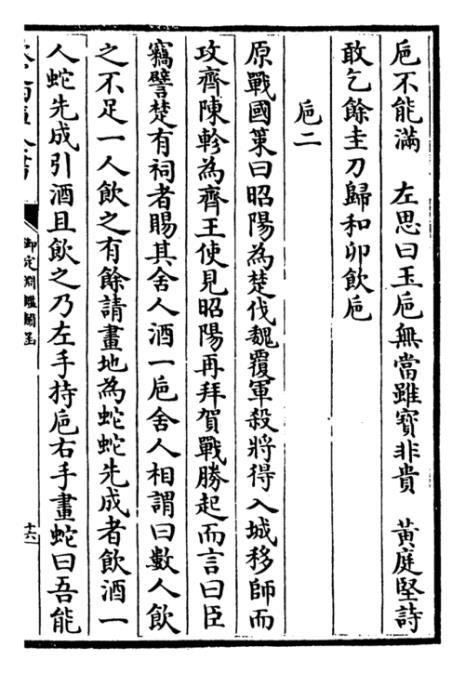 巵不能滿　左思曰玉巵無當雖寳非貴　黃庭堅詩
敢乞餘圭刀歸和卯飲巵
巵二
原戰國策曰昭陽為楚伐魏覆軍殺將得八城移師而
攻齊陳軫為齊王使見昭陽再拜賀戰勝起而言曰臣
竊譬楚有祠者賜其舍人酒一巵舍人相謂曰數人飲
之不足一人飲之有餘請畫地為蛇蛇先成者飲酒一
人蛇先成引酒且飲之乃左手持巵右手畫蛇曰吾能
御定淵鑑類函
十六